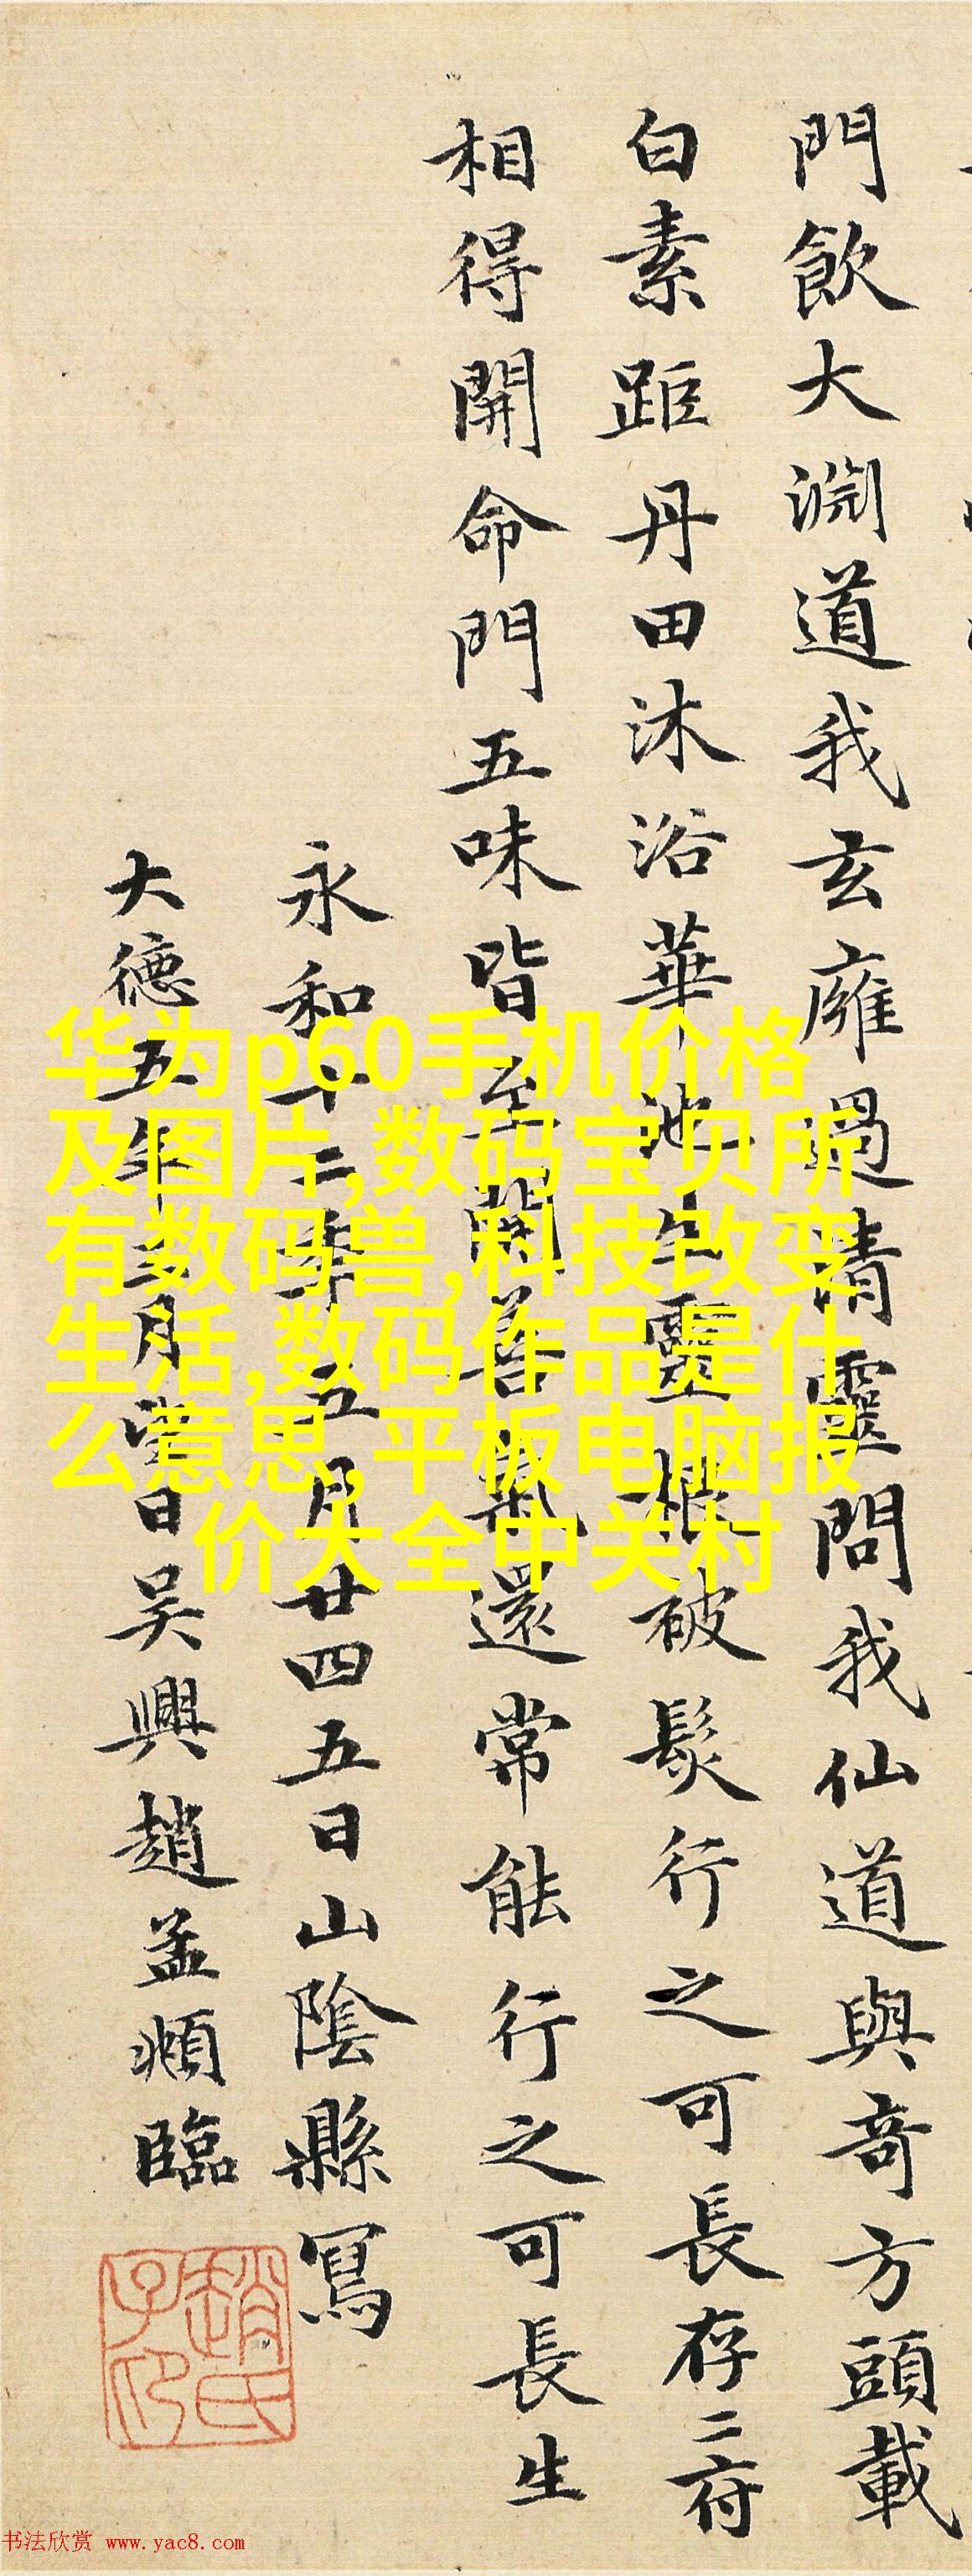 門飲大淵道我玄廱過清靈問我仙道與竒方頭載
白素距丹田沐浴華池生靈根被髮行之可長存二府
相得開命門五味皆至開善氣還常能行之可長生
永和十二年五月廿四五日山陰縣寫
大德五年月望日吴興趙孟頫臨
趙氏子印
华为p60手机价格
及图片,数码宝贝所
有数码兽,科技改变
生活,数码作品是什
么意思,平板电脑报
价大全中关村
书法欣赏 www.yac8.com